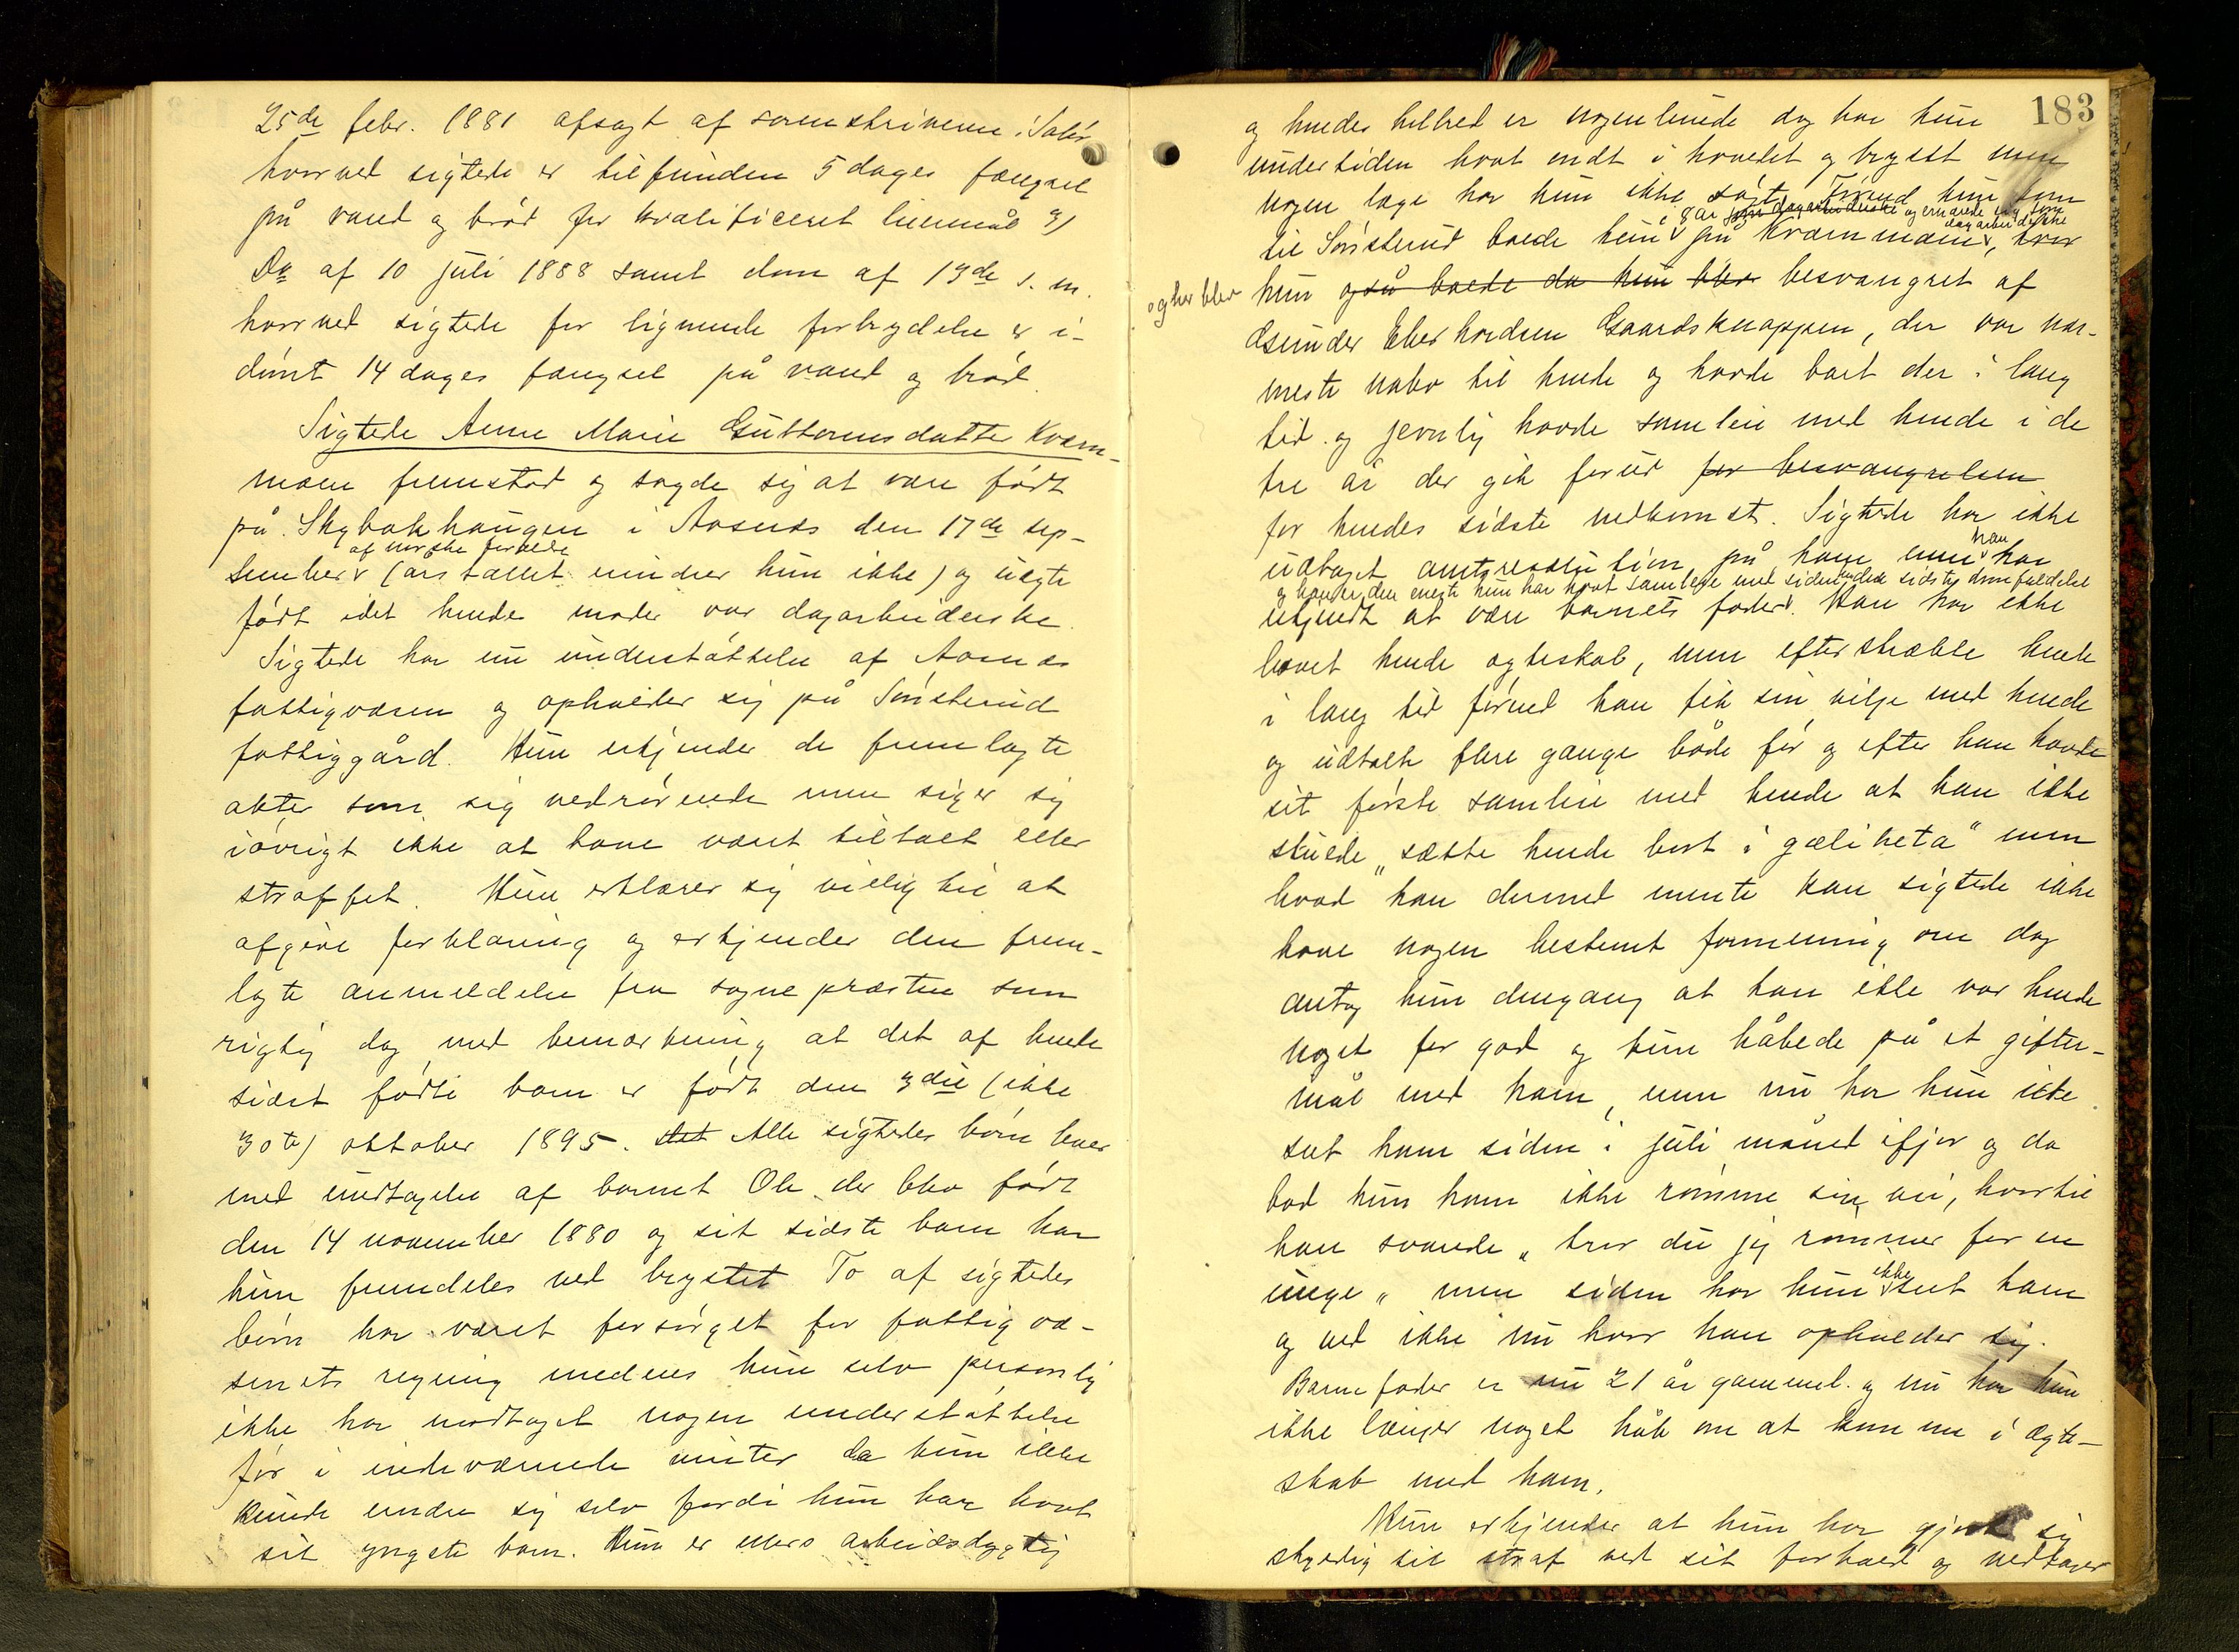 25de febr. 1881 afsagt af sorenskriveren i Solør
hvorved sigtede er tilfunden 5 dages fængsel
på vand og brød for kvalificeret leiermål 3)
Do af 10 juli 1888 samt dom af 19de s. m.
hvorved sigtede for lignende forbrydelse er i-
dømt 14 dages fængsel på vand og brød.
Sigtede Anne Marie Guttormsdatter Kværn-
moen fremstod og sagde sig at være født
på Skybakhaugen i Aasnes den 17de sep-
af norske forældre
tember (årstallet mindes hun ikke) og uægte
født idet hendes moder var dagarbeiderske.
Sigtede har nu understøttelse af Aasnes
fattigvæsen og opholder sig på Sønsterud
fattiggård. Hun erkjender de fremlagte
akter som sig vedrørende men siger sig
iøvrigt ikke at have været tiltalt eller
straffet. Hun erklærer sig villig til at
afgive forklaring og erkjender den frem-
lagte anmeldelse fra sognepræsten som
rigtig dog med bemærkning at det af hende
sidst fødte barn er født den 3die (ikke
30te) oktober 1895. Det Alle sigtedes børn lever
med undtagelse af barnet Ole der blev født
den 14 november 1880 og sit sidste barn har
hun fremdeles ved brystet. To af sigtedes
børn har været forsørget for fattigvæ-
senets regning medens hun selv personlig
ikke har modtaget nogen understøttelse
før i indeværende vinter da hun ikke
kunde endre sig selv fordi hun har havt
sit yngste barn. Hun er ellers arbeidsdygtig
183
og hendes helbred er nogenlunde dog har hun
undertiden havt ondt i hovedet og bryst men
nogen læge har hun ikke søgt. Førend hun kom
i 8 år som dagarbeiderske og ernærede sig som
dagarbeiderske
til Sønsterud boede hun på Kværnmoen, hvor
og her blev
hun også boede da hun blev besvangret af
Gsunder Eberhardsen Gaardsknappen, der var nær-
meste nabo til hende og havde boet der i lang
tid og jevnlig havde samleie med hende i de
tre år der gik forud for besvangrelsen
for hendes sidste nedkomst. Sigtede har ikke
udtaget amtsresolution på ham men han har
og han er den eneste hun har havt samleie med siden hendes sidste domfældelse
erkjendt at være barnets fader. Han har ikke
lovet hende ægteskab, men efterstræbte hende
i lang tid førend han fik sin vilje med hende
og udtalte flere gange både før og efter han havde
sit første samleie med hende at han ikke
skulde "sætte hende bort i gæliheta" men
hvad han dermed mente kan sigtede ikke
have nogen bestemt formening om dog
antog hun dengang at han ikke var hende
noget for god og hun håbede på et gifter-
mål med ham, men nu har hun ikke
seet ham siden i juli måned ifjor og da
bad hun ham ikke rømme sin vei, hvortil
han svarede "tror du jeg rømmer for en
unge" men siden har hun ikke seet ham
og ved ikke nu hvor han opholder sig.
Barnefader er nu 21 år gammel og nu har hun
ikke længer noget håb om at komme i ægte-
skab med ham.
Hun erkjender at hun har gjort sig
skyldig til straf ved sit forhold og vedtager